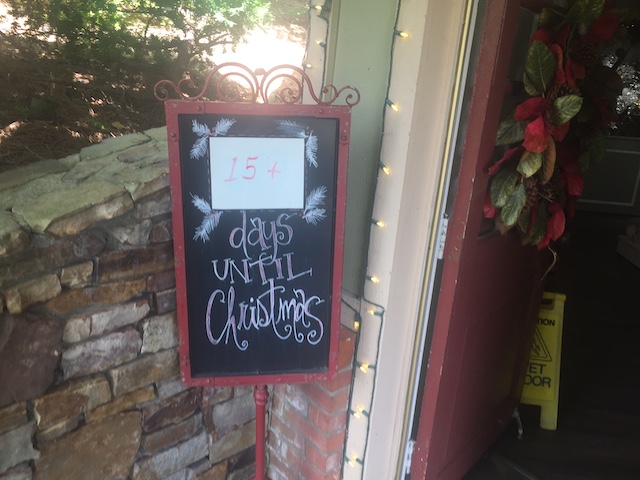 15+
days
UNTIL
Christmas
TION
ET
OOR